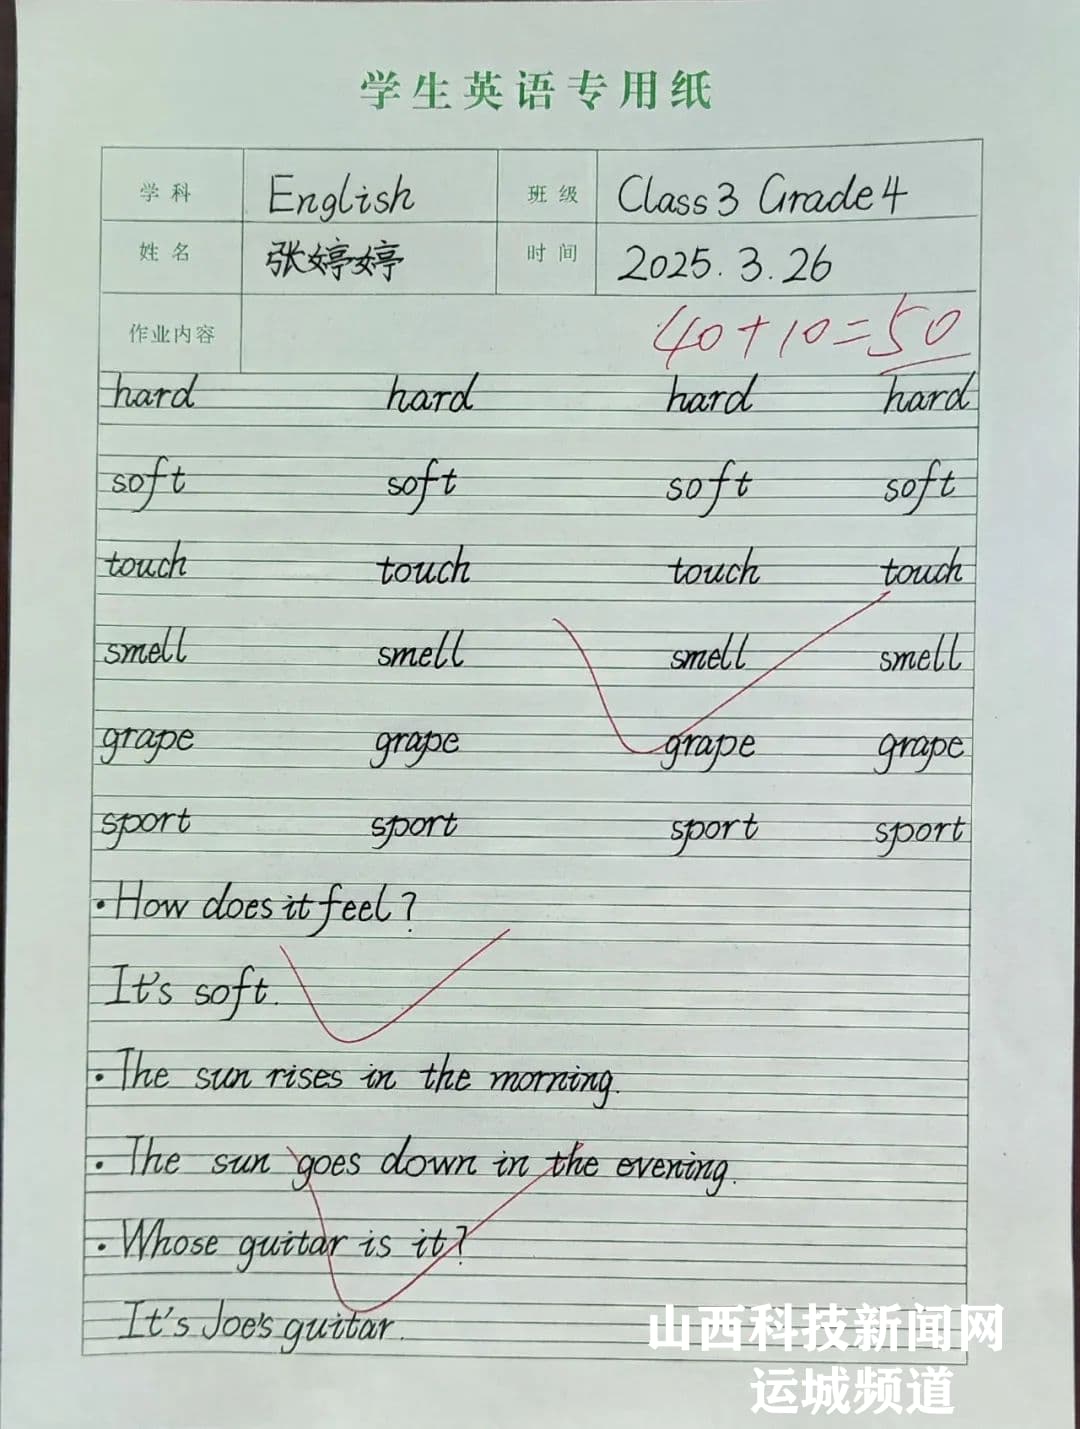 学生英语专用纸
学科 English 班级 Class 3 Grade 4
姓名 张婷婷 时间 2025.3.26
作业内容 40+10=50
hard hard hard hard
soft soft soft soft
touch touch touch touch
smell smell smell smell
grape grape grape grape
sport sport sport sport
·How does it feel?
It's soft.
·The sun rises in the morning.
·The sun goes down in the evening.
·Whose guitar is it?
It's Joe's guitar.
山西科技新闻网
运城频道